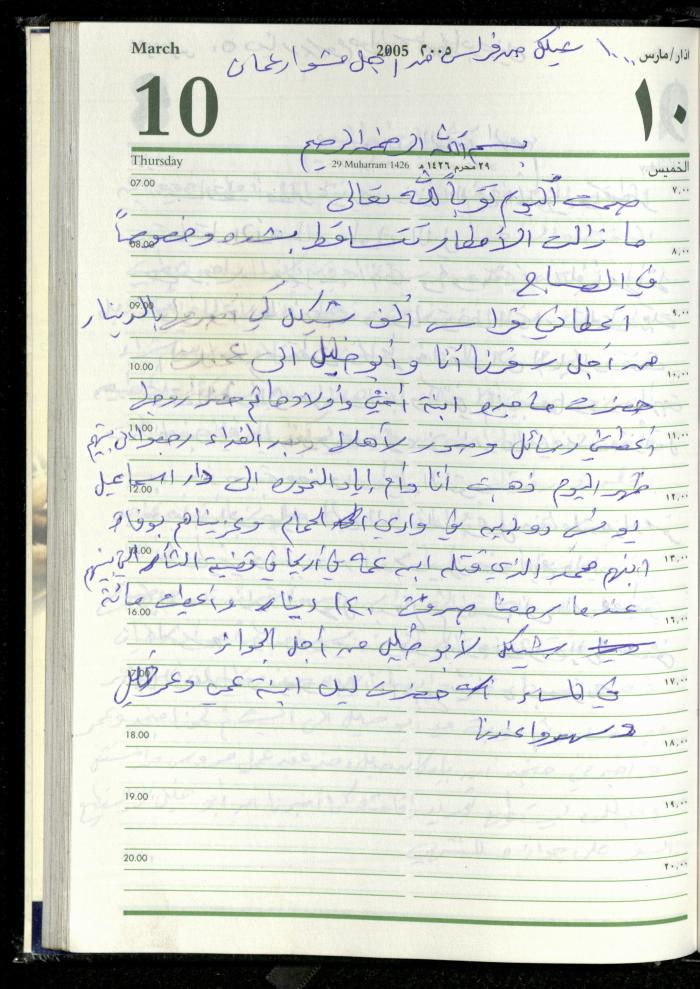 March 2005 ٢٠٠٥ اذار/مارس
١٠٠٠ شيكل من فراس من أجل مشوار عمان
10 ١٠
بسم الله الرحمن الرحيم
Thursday 29 Muharram 1426 ٢٩ محرم ١٤٢٦ هـ الخميس
07.00 ٧,٠٠
صمت اليوم تقرباً لله تعالى
ما زالت الأمطار تتساقط بشده وخصوصاً
08.00 ٨,٠٠
في الصباح
09.00 ٩,٠٠
أعطاني فراس ألف شيكل كي بالدينار
من أجل سفرنا أنا وأبو خليل الى
10.00 ١٠,٠٠
حضرت ماجده ابنة أختي وأولادها ثم حضر زوجها
11.00 ١١,٠٠
أعطتني رسائل وصور لأهلا وبعد الغداء رجعوا الى بيتهم
ظهر اليوم ذهبت أنا وأم إياد الى دار اسماعيل
12.00 ١٢,٠٠
يونس في وادي الحمام وعزيناهم بوفاة
13.00 ١٣,٠٠
ابنهم محمد الذي قتله ابن عمه في أريحا في قضية الثأر التي بينهم
عندما رجعنا صرفت ١٤٠ دينار وأعطيت مائة
16.00 ١٦,٠٠
شيكل لأبو خليل من أجل الجواز
17.00 ١٧,٠٠
في المساء حضرت ليلى ابنة عمي وعمر خليل
وسهروا عندنا
18.00 ١٨,٠٠
19.00 ١٩,٠٠
20.00 ٢٠,٠٠